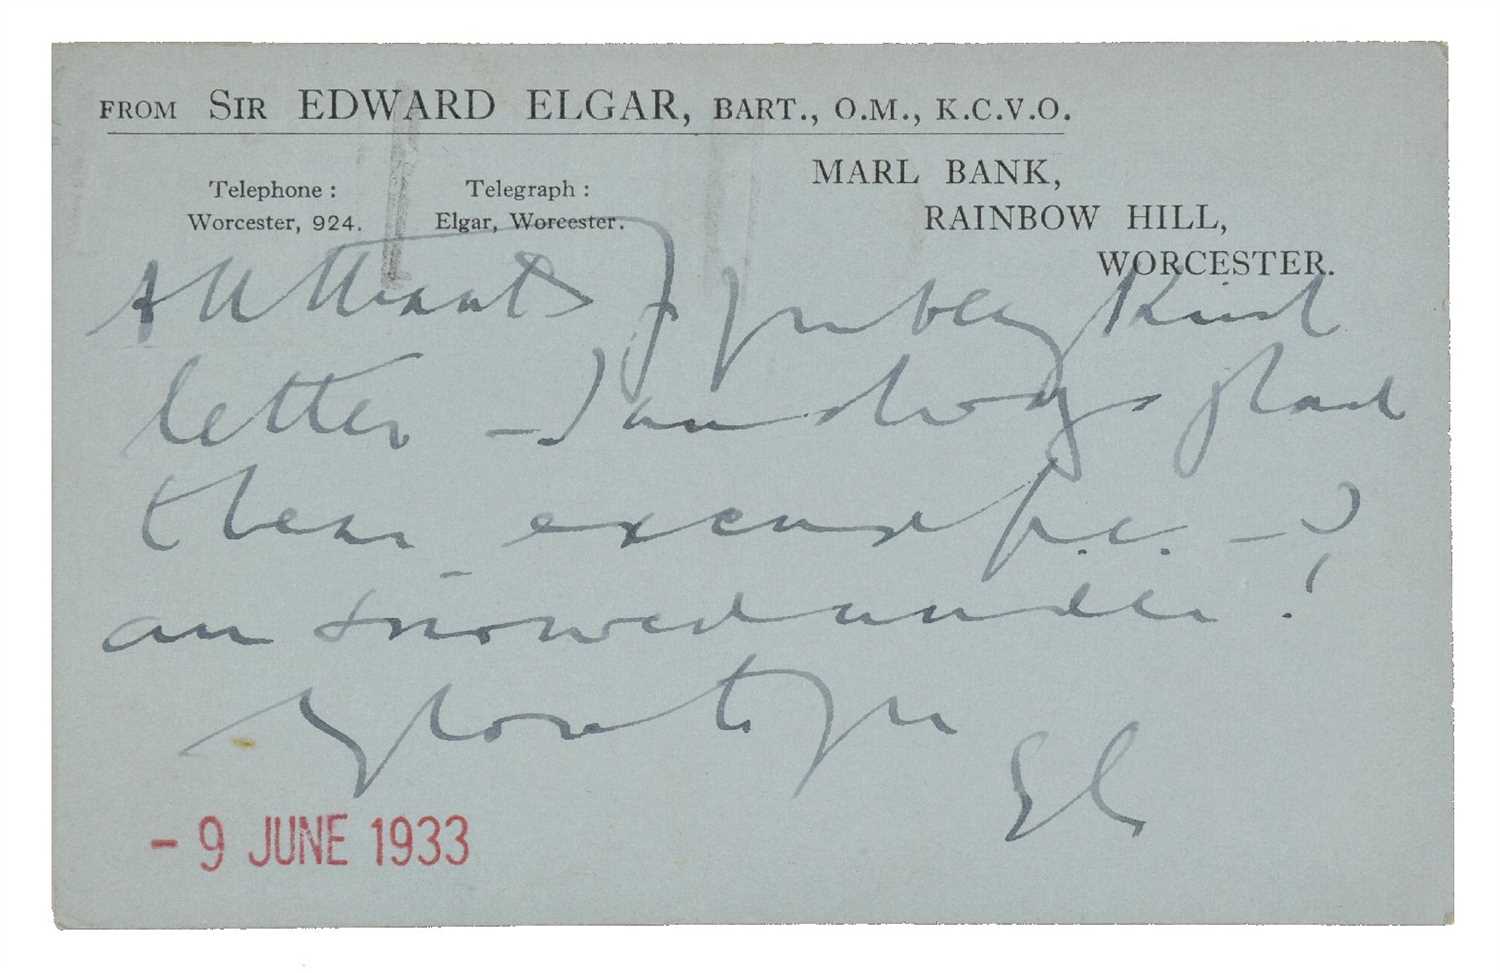 FROM SIR EDWARD ELGAR, BART., O.M., K.C.V.O.
Telephone :
Worcester, 924.
Telegraph :
Elgar, Worcester.
MARL BANK,
RAINBOW HILL,
WORCESTER.
All thanks for your kind
letter – I am always glad
to hear excuse p.c. – I
am snowed under!
love to you
EE
– 9 JUNE 1933